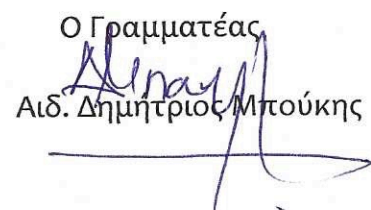 Ο Γραμματέας
Αιδ. Δημήτριος Μπούκης